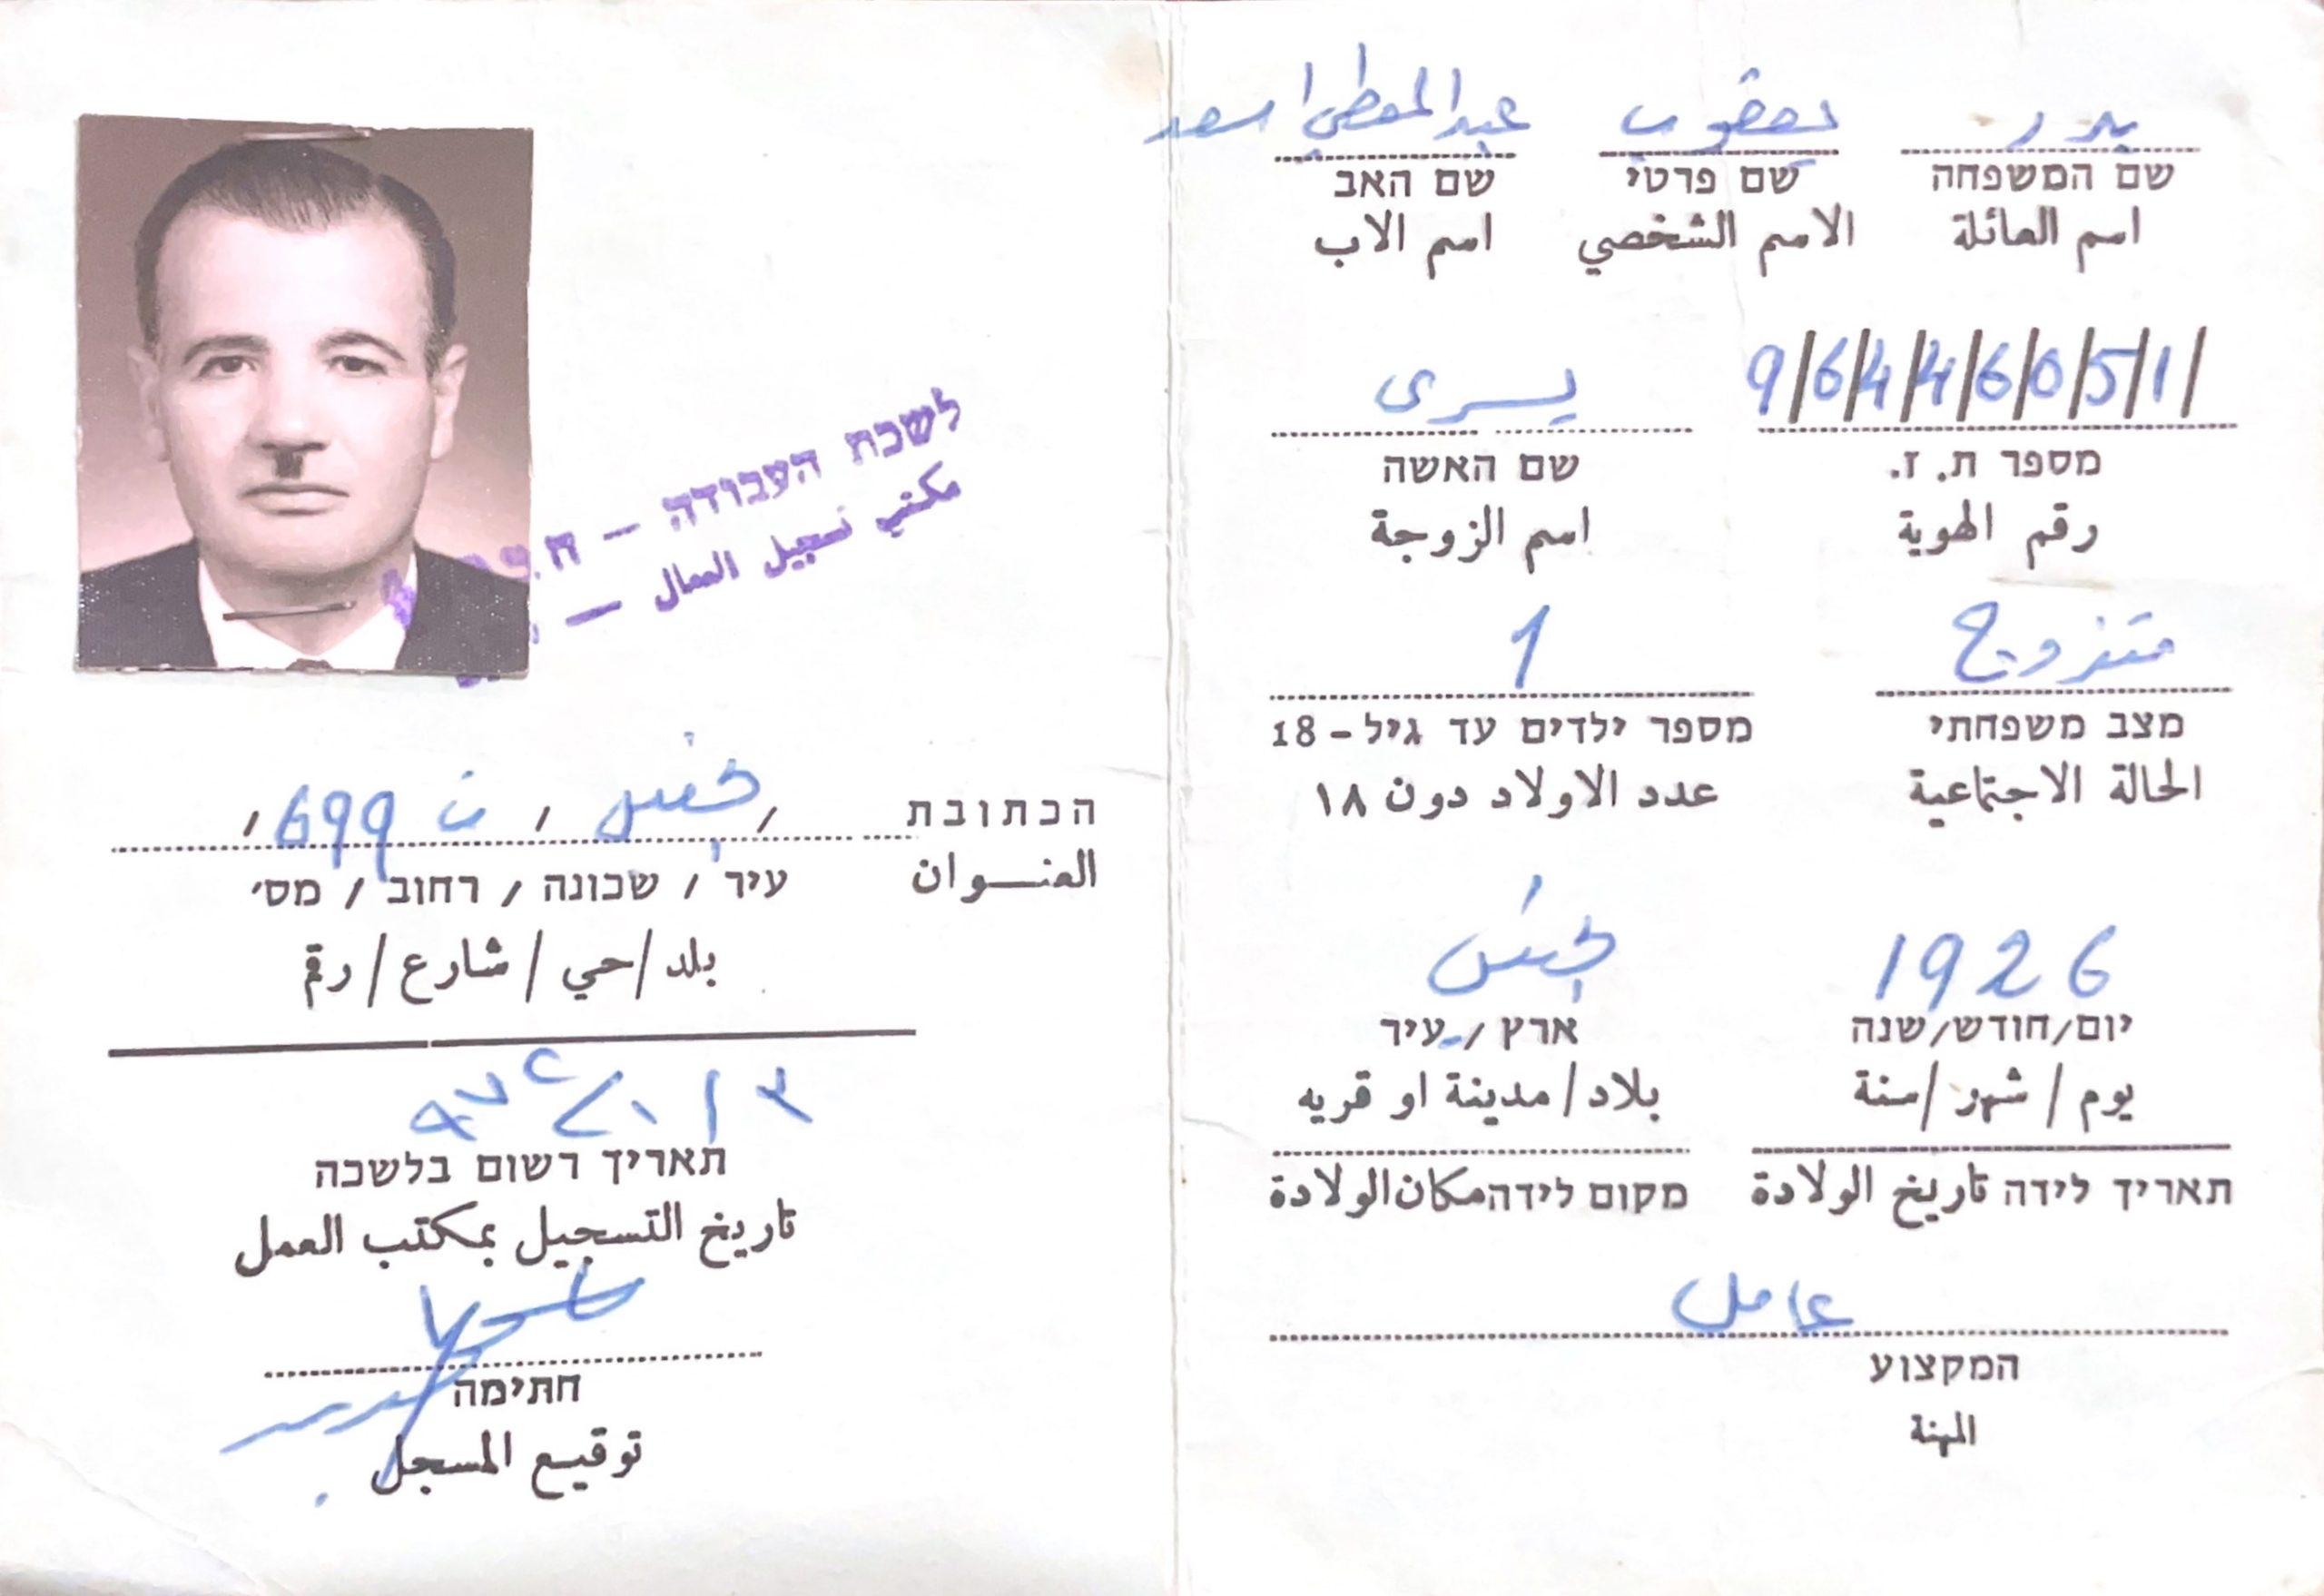 بدر يعقوب عبد المعطي اسعد
שם המשפחה שם פרטי שם האב
اسم العائلة الاسم الشخصي اسم الاب
9/6/4/4/6/0/5/1/ يسرى
מספר ת. ז. שם האשה
رقم الهوية اسم الزوجة
متزوج 1
מצב משפחתי מספר ילדים עד גיל-18
الحالة الاجتماعية عدد الاولاد دون ١٨
1926
יום/חודש/שנה ארץ/עיר
يوم/شهر/سنة بلاد/مدينة او قريه
תאריך לידה تاريخ الولادة מקום לידה مكان الولادة
عامل
המקצוע
المهنة
לשכת העבודה -
مكتب تسجيل العمال -
הכתובת / / ت 699 /
العنوان
עיר / שכונה / רחוב / מס׳
بلد/حي/شارع/رقم
תאריך רשום בלשכה
تاريخ التسجيل بمكتب العمل
חתימה
توقيع المسجل